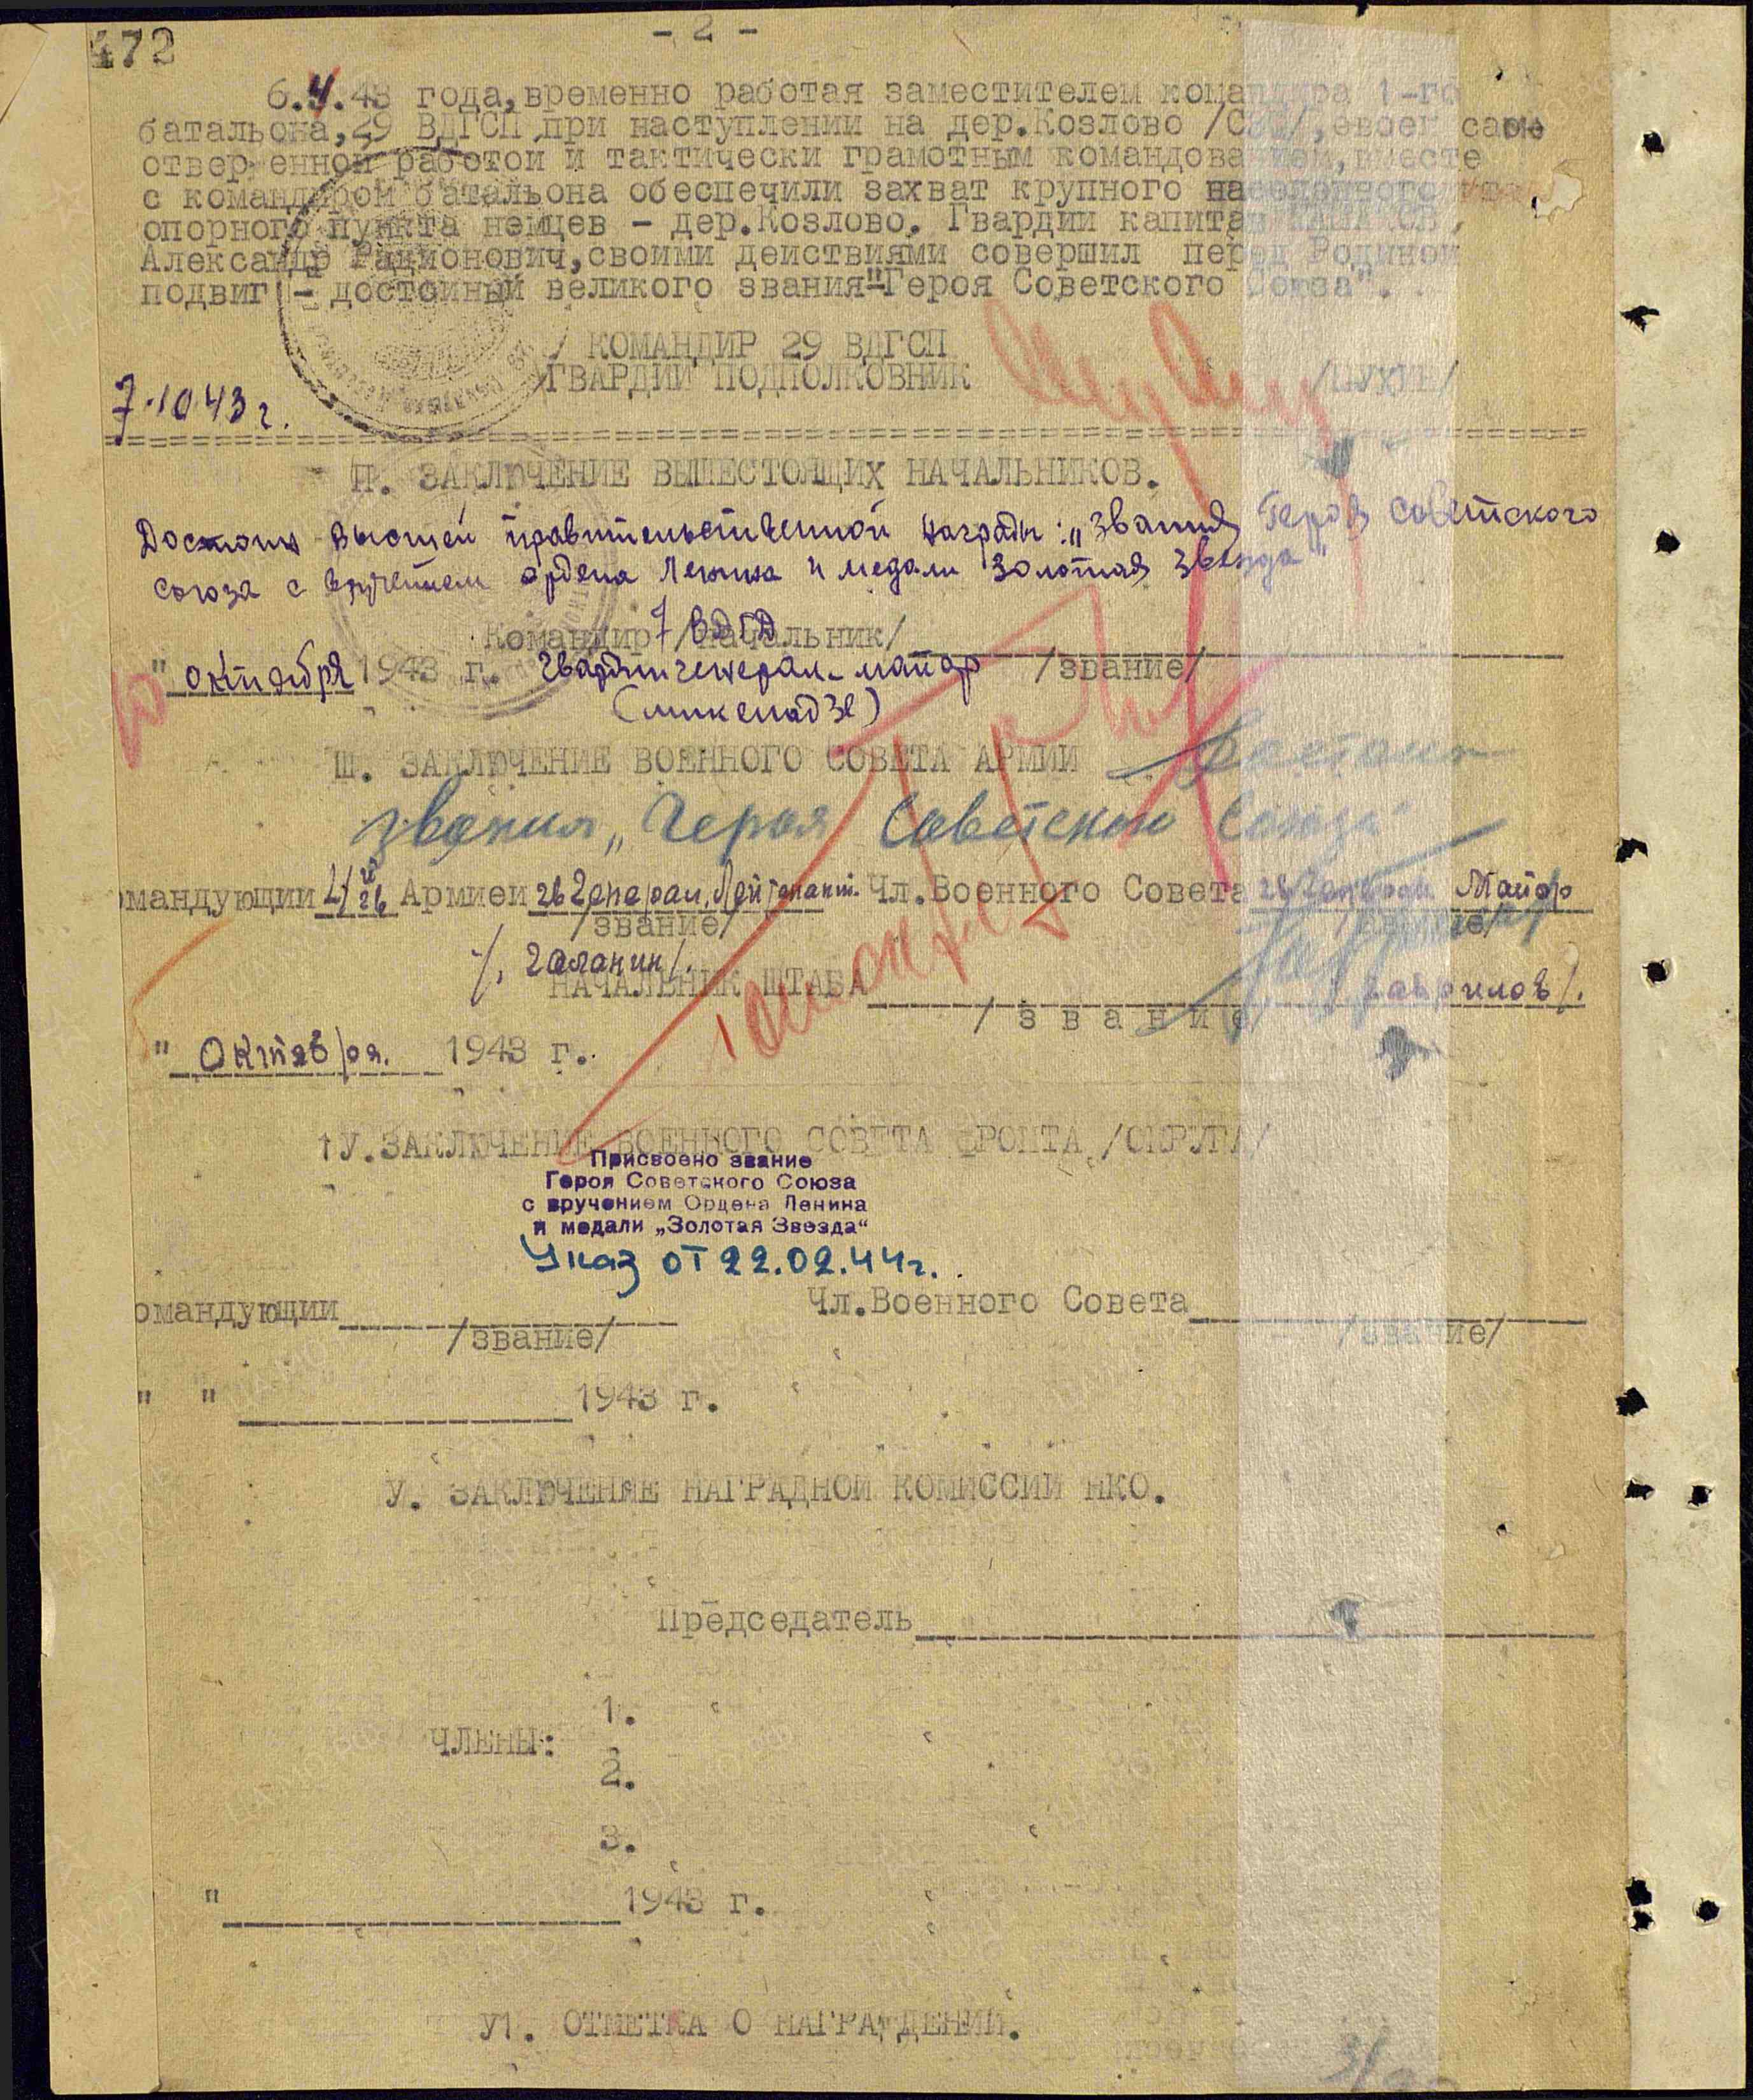 472
- 2 -
6.4.43 года, временно работая заместителем командира 1-го
батальона, 29 ВДГСП, при наступлении на дер.Козлово /СЗФ/, своей само
отверженной работой и тактически грамотным командованием, вместе
с командиром батальона обеспечили захват крупного населенного
опорного пункта немцев - дер.Козлово. Гвардии капитан
Александр Радионович, своими действиями совершил перед Родиной
подвиг - достойный великого звания "Героя Советского Союза".
КОМАНДИР 29 ВДГСП
ГВАРДИИ ПОДПОЛКОВНИК
7.10 43 г.
П. ЗАКЛЮЧЕНИЕ ВЫШЕСТОЯЩИХ НАЧАЛЬНИКОВ.
Достоин высшей правительственной награды: „Звания Героя Советского
союза с вручением ордена Ленина и медали Золотая Звезда"
Командир 7 ВДГД /начальник/
" октября 1943 г. гвардии генерал-майор /звание/
(микеладзе)
Ш. ЗАКЛЮЧЕНИЕ ВОЕННОГО СОВЕТА АРМИИ Достоин
звания „Героя Советского Союза"
омандующий 4й гв Армией гв Генерал, Лейтенант. Чл.Военного Совета гв Генерал Майор
/звание/ /звание/
/. Галанин/.
НАЧАЛЬНИК ШТАБА Гаврилов/.
/ з в а н и е/
" Октября. 1943 г.
1У. ЗАКЛЮЧЕНИЕ ВОЕННОГО СОВЕТА ФРОНТА /ОКРУГА/
Присвоено звание
Героя Советского Союза
с вручением Ордена Ленина
и медали „Золотая Звезда“
Указ от 22.02.44г.
омандующий Чл.Военного Совета
/звание/ /звание/
" " 1943 г.
У. ЗАКЛЮЧЕНИЕ НАГРАДНОЙ КОМИССИИ НКО.
Председатель
1.
ЧЛЕНЫ:
2.
3.
" 1943 г.
У1. ОТМЕТКА О НАГРАЖДЕНИИ.